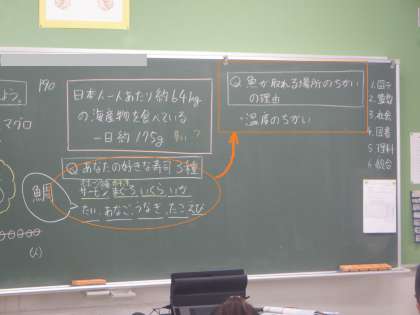 よう。
190
マグロ
鯛
日本人一人あたり約64kg
の海産物を食べている
一日約175g
Q あなたの好きな寿司3種
サーモン まぐろ いくら いか
たい、あなご、うなぎ、たこ、えび
Q 魚が取れる場所のちがい
の理由
・温度のちがい
3.社会
4.図書
5.理科
6.総合